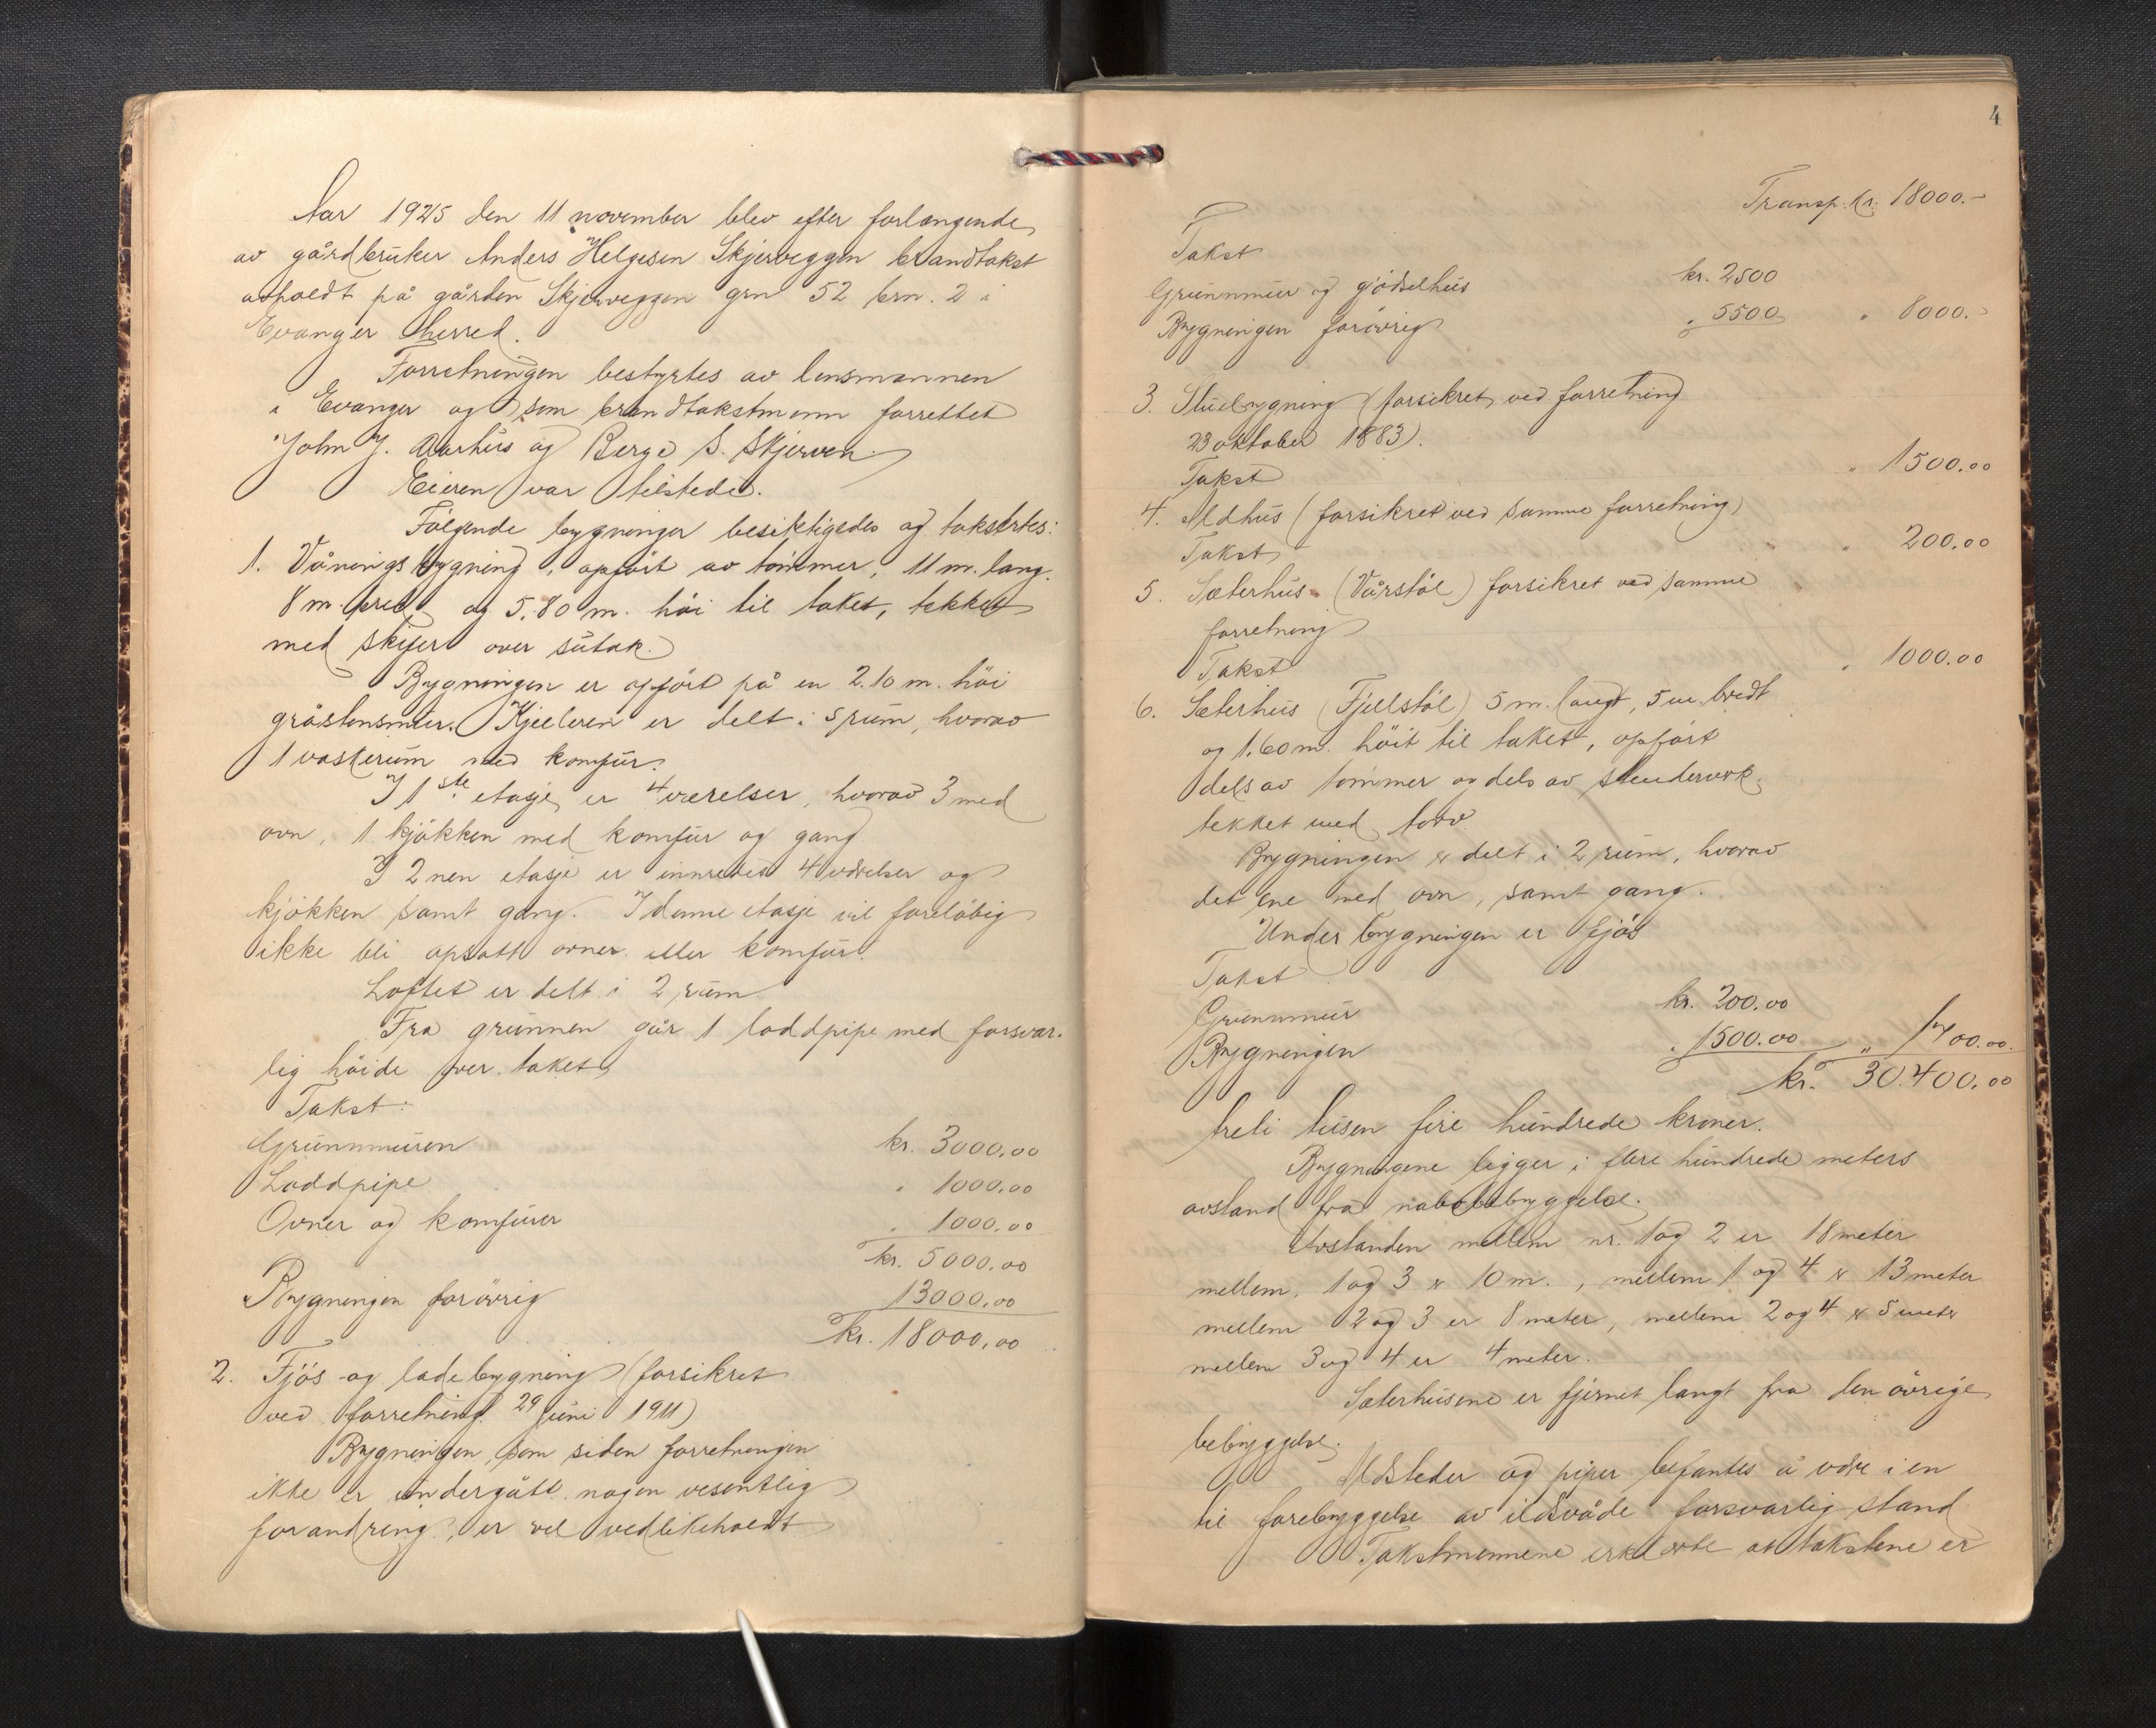 Aar 1925 den 11 november blev efter forlangende
av gårdbruker Anders Helgesen Skjerveggen brandtakst
avholdt på gården Skjerveggen grn 52 brn. 2 i
Evanger herred.
Forretningen bestyrtes av lensmannen
i Evanger og som brandtakstmenn forrettet
John J. Aarhus og Berge S. Skjerven.
Eieren var tilstede.
Følgende bygninger besiktigedes og takstertes:
1. Våningsbygning, opført av tømmer, 11 m. lang.
8 m. bred og 5.80 m. høi til taket, tekket
med skifer over sutak.
Bygningen er opført på en 2.10 m. høi
gråstensmur. Kjelleren er delt i 5 rum, hvorav
1 vaskerum med komfur.
I 1ste etasje er 4 værelser, hvorav 3 med
ovn, 1 kjøkken med komfur og gang
I 2nen etasje er innredet 4 værelser og
kjøkken samt gang. I denne etasje vil foreløbig
ikke bli opsatt ovner eller komfur.
Loftet er delt i 2 rum
Fra grunnen går 1 loddpipe med forsvar-
lig høide over taket
Takst:
Grunnmuren kr. 3000.00
Loddpipe " 1000.00
Ovner og komfurer " 1000.00
kr. 5000.00
Bygningen forøvrig 13000.00
kr. 18000.00
2. Fjøs- og ladebygning (forsikret
ved forretning 29 juni 1911)
Bygningen, som siden forretningen
ikke er undergått nogen vesentlig
forandring, er vel vedlikeholdt
4
Transp. kr. 18000.-
Takst
Grunnmur og gjødselhus kr. 2500
Bygningen forøvrig " 5500 " 8000.-
3. Stuebygning (forsikret ved forretning
23 oktober 1883).
Takst " 1500.00
4. Ildhus (forsikret ved samme forretning)
Takst " 200.00
5. Sæterhus (Vårstøl) forsikret ved samme
forretning
Takst " 1000.00
6. Sæterhus (Fjellstøl) 5 m. langt, 5 m. bredt
og 1.60 m. høit til taket, opført
dels av tømmer og dels av stenderverk,
tekket med torv
Bygningen er delt i 2 rum, hvorav
det ene med ovn, samt gang.
Under bygningen er fjøs
Takst
Grunnmur kr. 200.00
Bygningen " 1500.00 " 1700.00.
kr. 30.400.00
treti tusen fire hundrede kroner.
Bygningene ligger i flere hundrede meters
avstand fra nabobebyggelse.
Avstanden mellem nr. 1 og 2 er 18 meter
mellem 1 og 3 er 10 m., mellem 1 og 4 er 13 meter
mellem 2 og 3 er 8 meter, mellem 2 og 4 er 5 meter
mellem 3 og 4 er 4 meter.
Sæterhusene er fjernet langt fra den øvrige
bebyggelse.
Ildsteder og piper befantes å være i en
til forebyggelse av ildsvåde forsvarlig stand
Takstmennene erklærte at takstene er